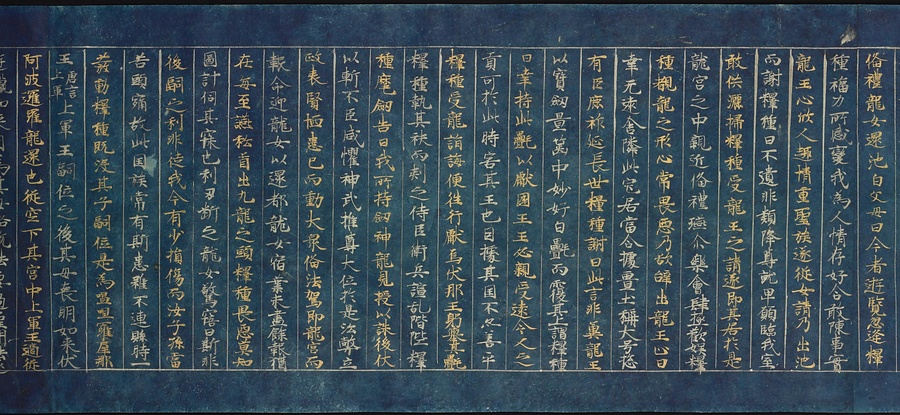 俻禮龍女還池白父母曰今者遊覽忽逢釋
種福力所感變我為人情存好合敢陳事實
龍王心欣人趣情重聖族遂從女請乃出池
而謝釋種曰不遺非類降尊就卑願臨我室
敢供灑掃釋種受龍王之請遂即其居於是
龍宮之中親迎俻禮讌尒樂會肆極歡娛釋
種覩龍之形心常畏惡乃欲辞出龍王止曰
幸无遠舍隣此宅居當令據疆土稱大号惣
有臣庶祚延長世釋種謝曰此言非冀龍王
以寶劒置篋中妙好白㲲而覆其上謂釋種
曰幸持此㲲以獻國王王必親受遠人之
貢可於此時害其王也因據其国不亦善乎
釋種受龍誨便往行獻烏伏那王躬舉其㲲
釋種執其袂而刺之侍臣衛兵諠乱階陛釋
種麾劒告曰我所持劒神龍見授以誅後伏
以斬不臣咸懼神武推尊大位於是沿弊立
政表賢恤患已而動大衆俻法駕即龍宮而
報命迎龍女以還都龍女宿業未盡餘報猶
在每至讌私首出九龍之頭釋種畏惡莫知
圖計伺其寐也利刃断之龍女驚寤曰斯非
後嗣之利非徒我命有少損傷而汝子孫當
苦頭痛故此国族常有斯患雖不連緜時一
發動釋種既没其子嗣位是為嗢呾羅犀那
王唐言上軍上軍王嗣位之後其母喪明如来伏
阿波邏羅龍還也從空下其宮中上軍王適從